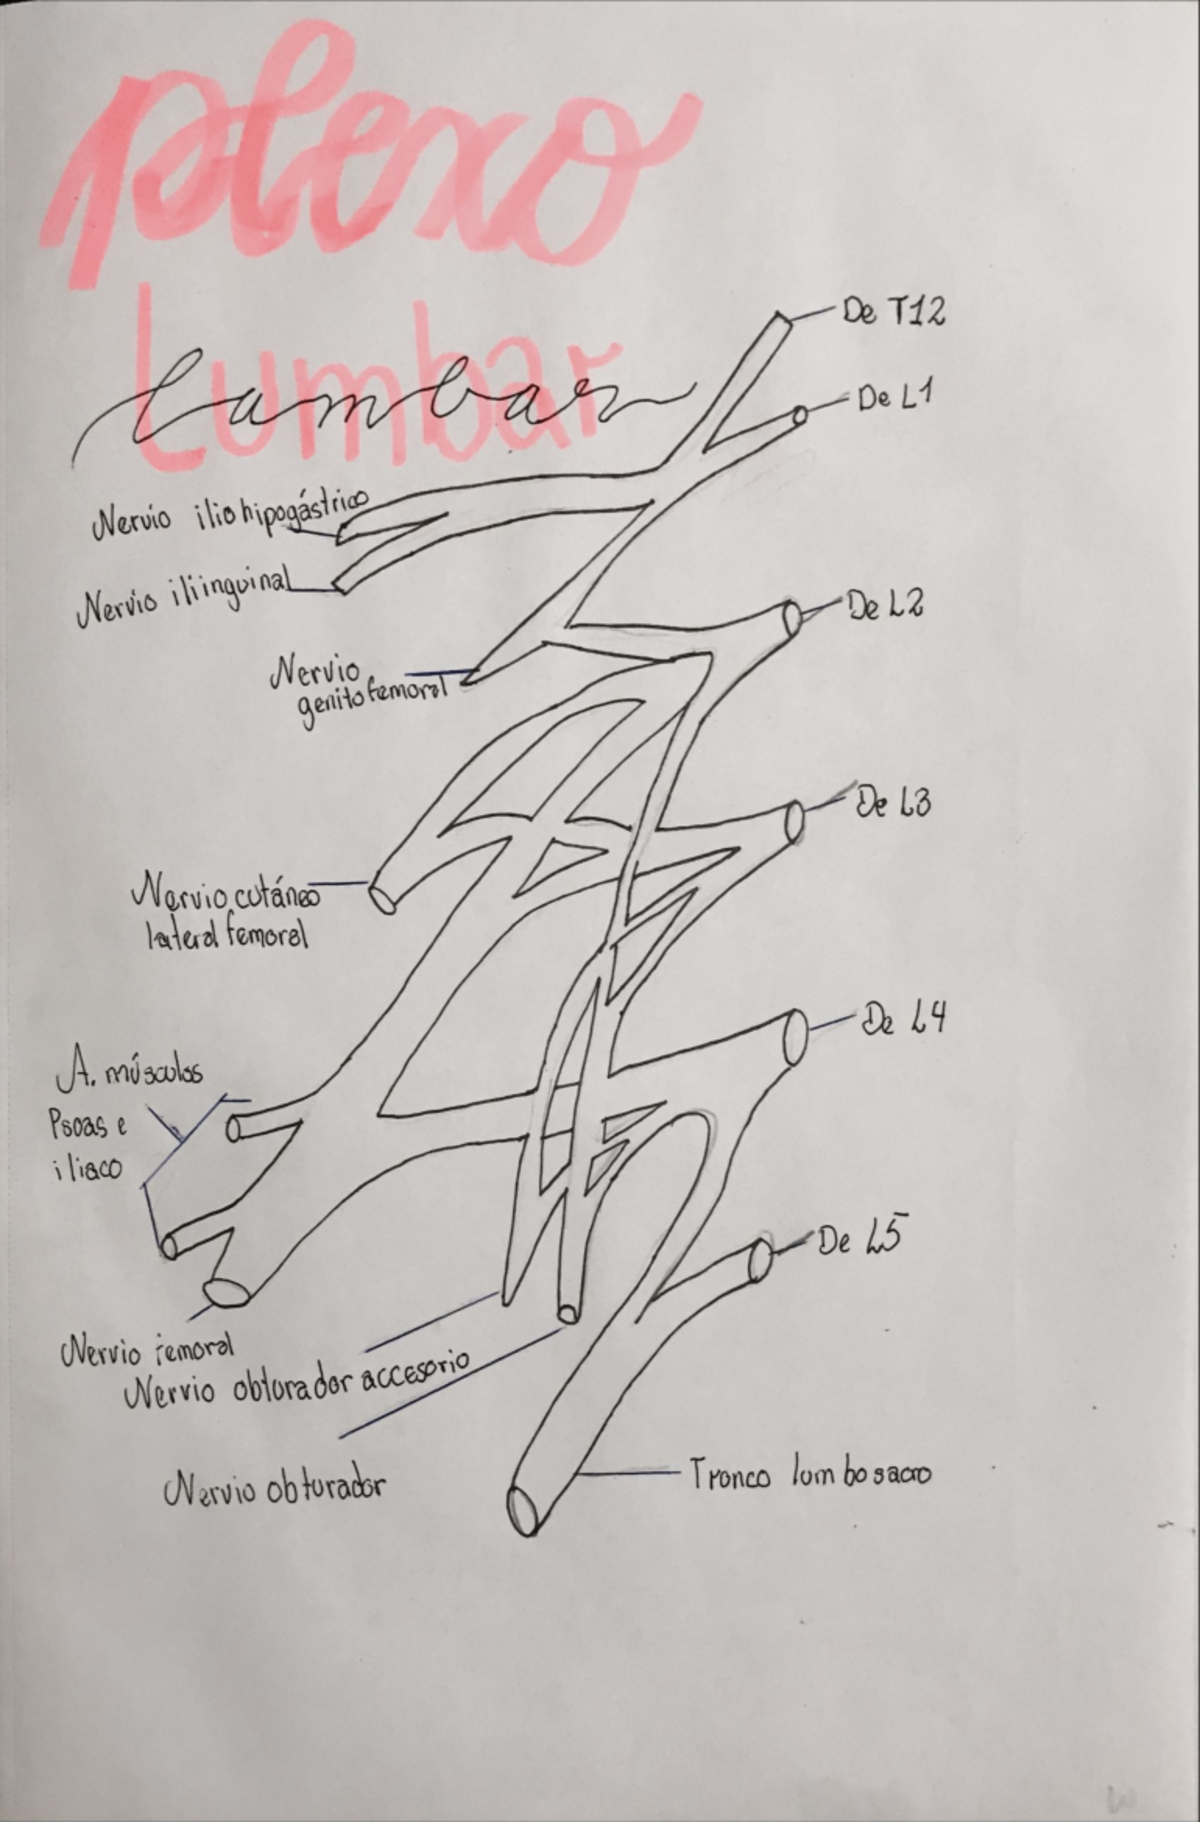 plexo
Lumbar
Lumbar
De T12
De L1
Nervio iliohipogástrico
Nervio iliinguinal
De L2
Nervio
genitofemoral
De L3
Nervio cutáneo
lateral femoral
De L4
A. músculos
Psoas e
iliaco
De L5
Nervio femoral
Nervio obturador accesorio
Nervio obturador
Tronco lumbosacro